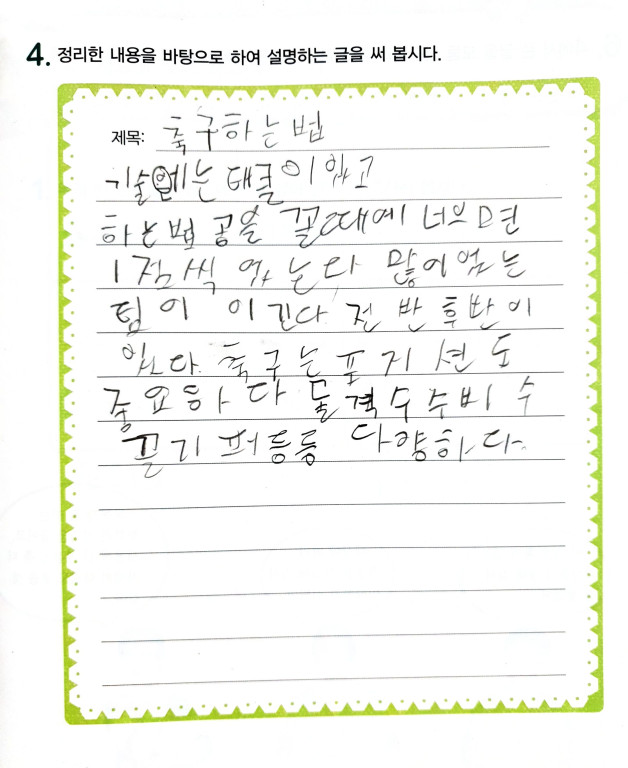 4. 정리한 내용을 바탕으로 하여 설명하는 글을 써 봅시다.
제목: 축구하는 법
기술에는 태클이 있고
하는법 공을 꼴때에 너으면
1점씩 얻는다 많이 얻는
팀이 이긴다 전반 후반이
있다. 축구는 포지션도
중요하다 공격수 수비수
골기퍼등등 다양하다.